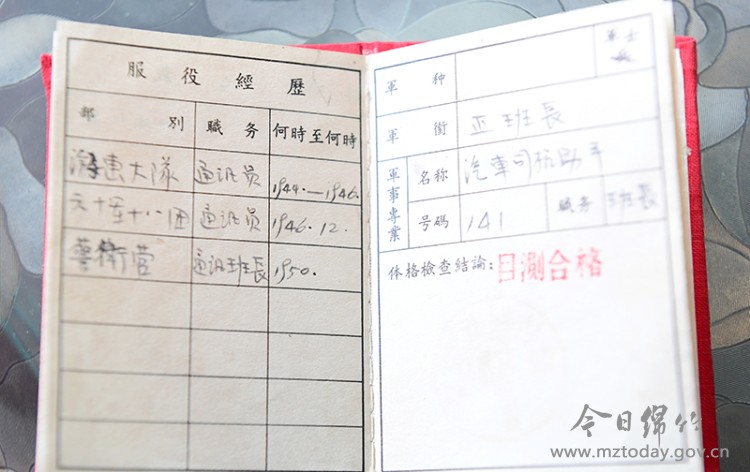 服役經歷
部別 職务 何時至何時
大隊 通訊员 1944.—1946.
六十 十八团 通訊员 1946.12.
警衛营 通訊班長 1950.
軍种 軍士
軍銜 正班長
軍事專業 名称 汽車司机助手
号碼 141 職务 班長
体格檢查結論:目測合格
今日绵竹
www.mztoday.gov.cn